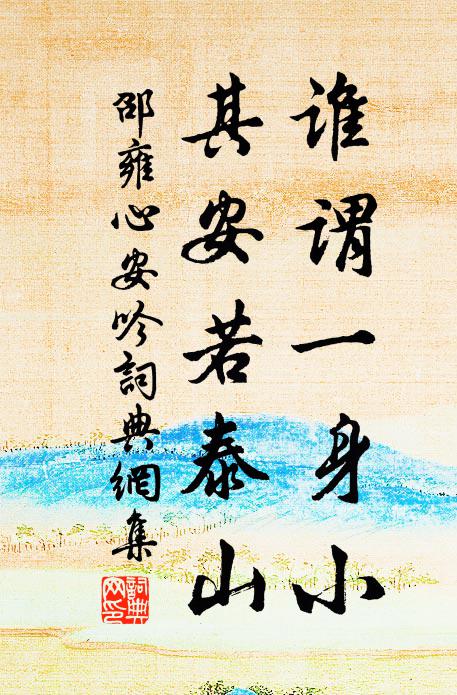 誰謂一身小
其安若泰山
邵雍心安吟詞典網集
詞典
网印